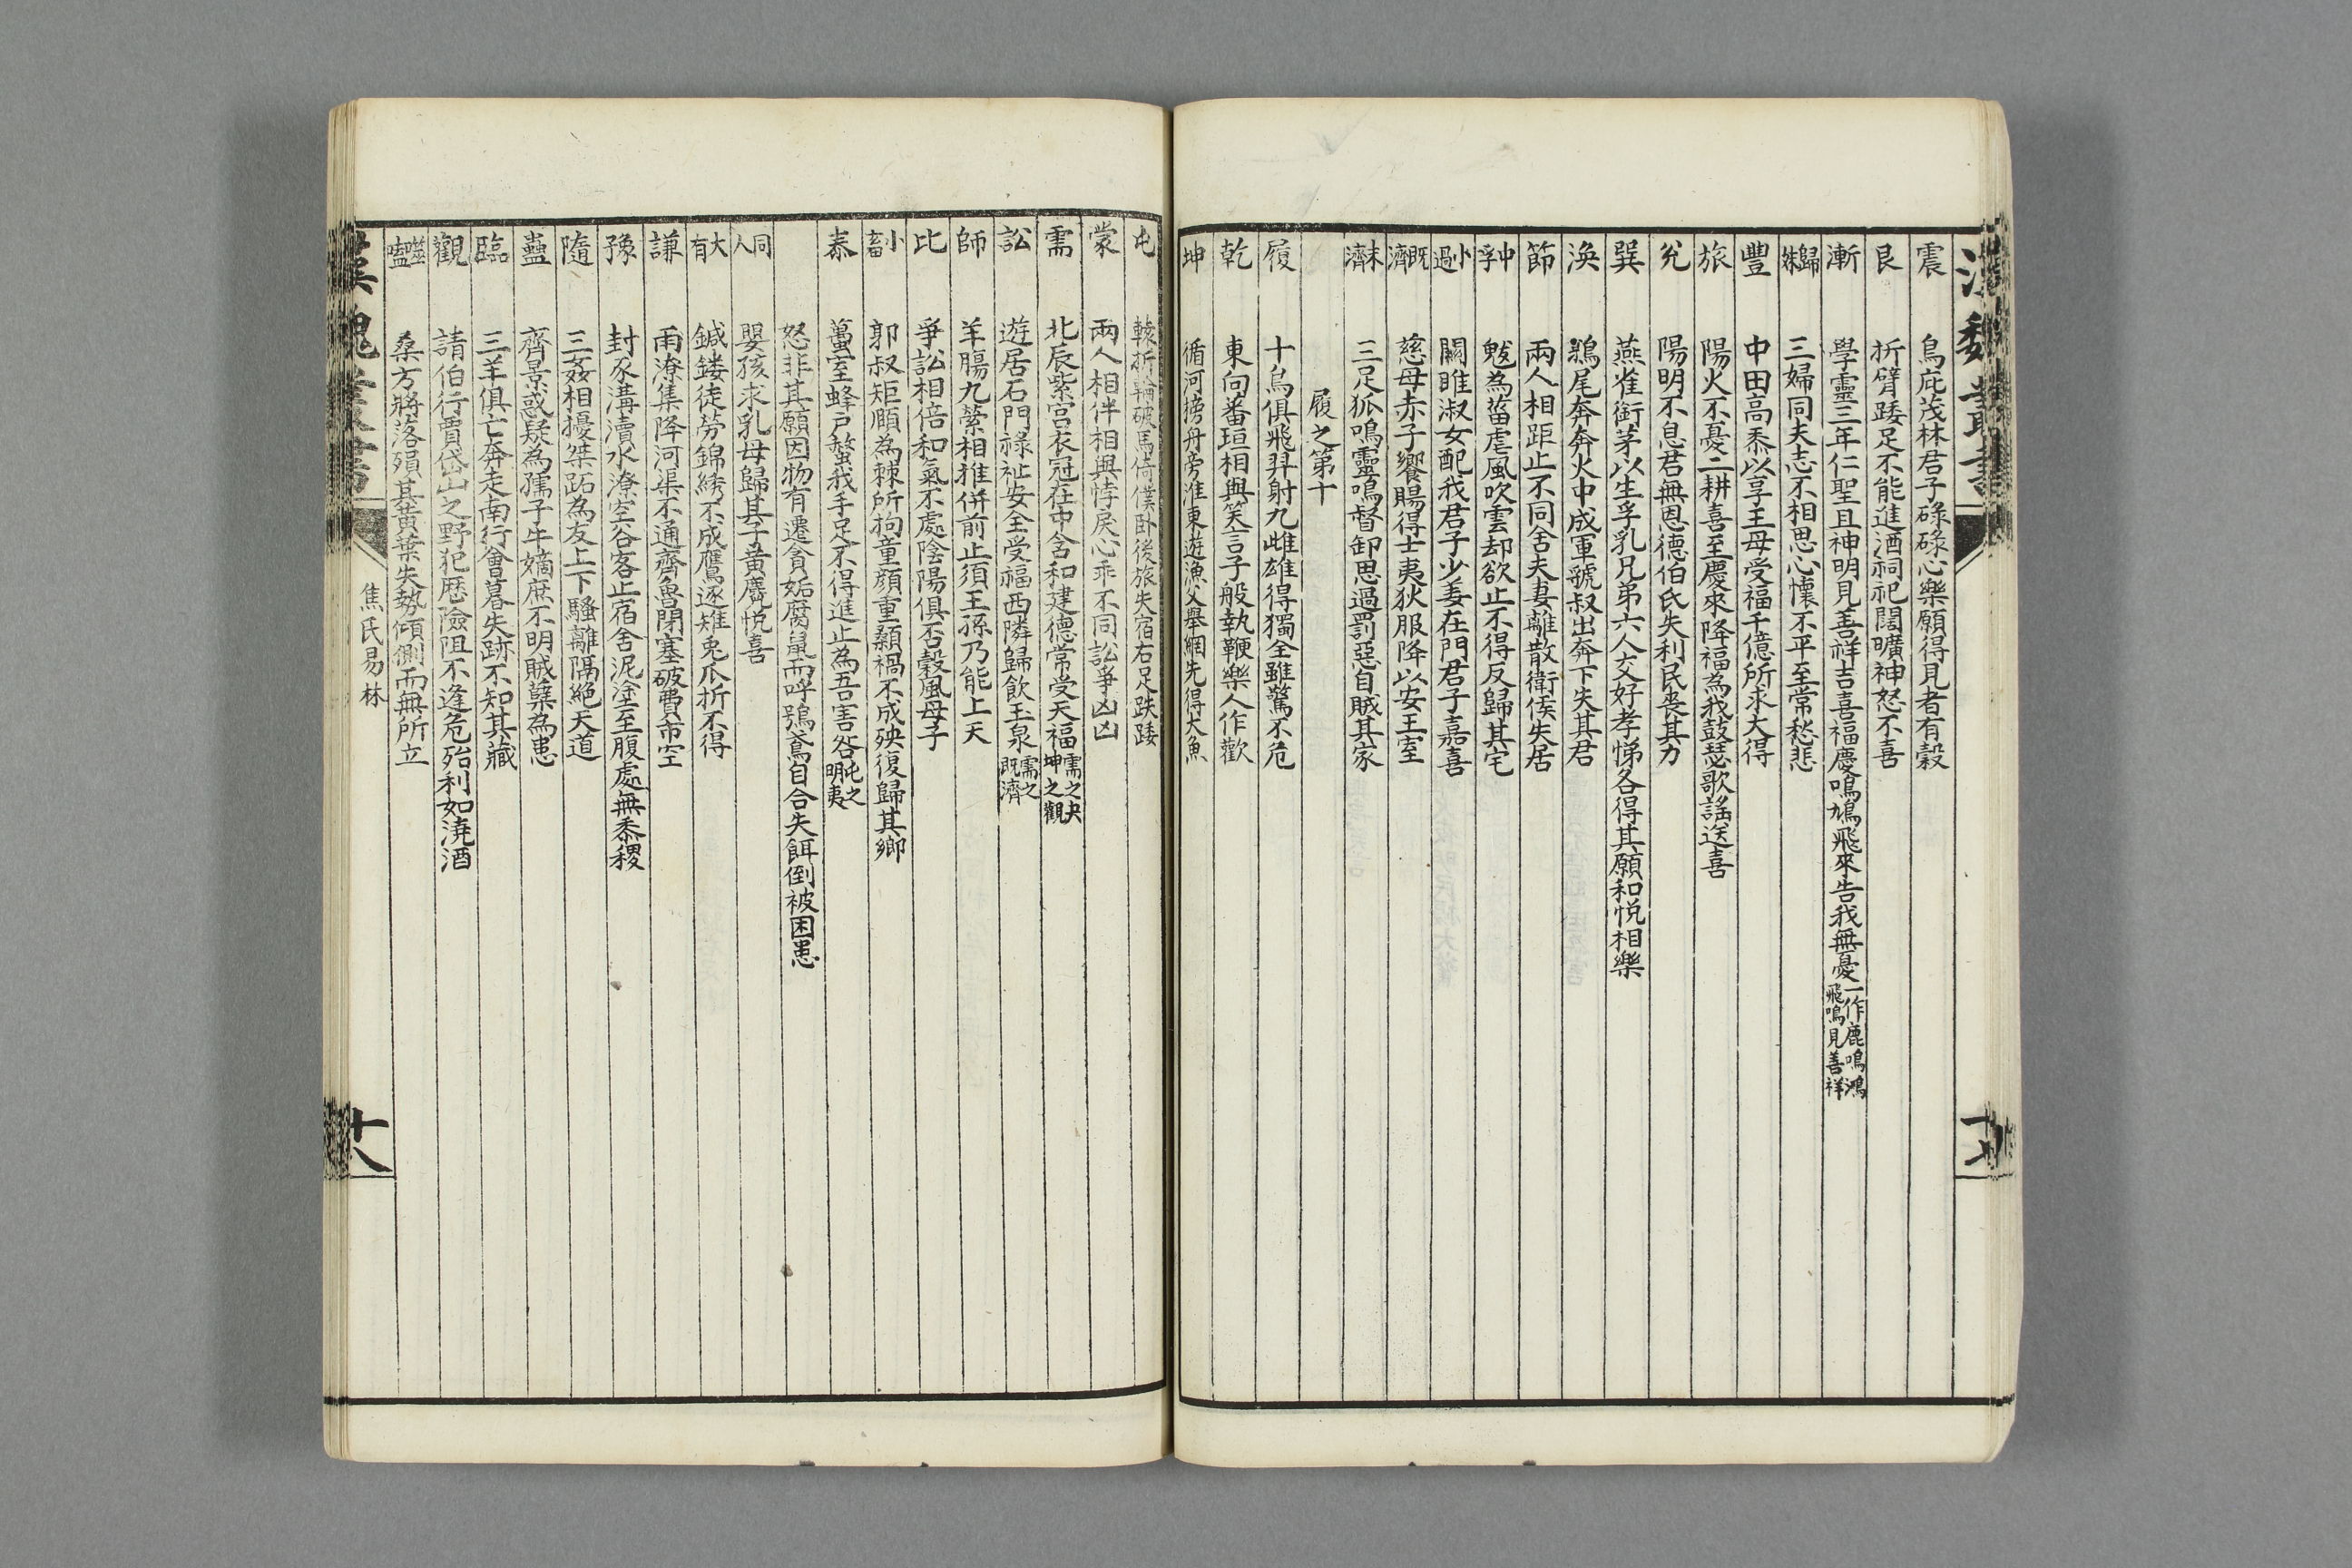 漢魏叢書
震 鳥庇茂林君子碌碌心樂願得見者有穀
艮 折臂踒足不能進酒祠祀闊曠神怒不喜
漸 學靈三年仁聖且神明見善祥吉喜福慶鳴鳩飛來告我無憂一作鹿鳴鴻飛鳴見善祥
歸妹 三婦同夫志不相思心懷不平至常愁悲
豐 中田高黍以享王母受福千億所求大得
旅 陽火不憂二耕喜至慶來降福為我鼓瑟歌謠送喜
兌 陽明不息君無恩德伯氏失利民喪其力
巽 燕雀銜茅以生孚乳兄弟六人交好孝悌各得其願和悅相樂
渙 鶉尾奔奔火中成軍虢叔出奔下失其君
節 兩人相距止不同舍夫妻離散衛侯失居
中孚 魃為菑虐風吹雲却欲止不得反歸其宅
小過 關雎淑女配我君子少姜在門君子嘉喜
既濟 慈母赤子饗賜得士夷狄服降以安王室
未濟 三足狐鳴靈鳴督卸思過罰惡自賊其家
履之第十
履 十烏俱飛羿射九雌雄得獨全雖驚不危
乾 東向蕃垣相與笑言子般執鞭樂人作歡
坤 循河榜舟旁淮東遊漁父舉網先得大魚
十七
屯 輳折輪破馬倚僕卧後旅失宿右足跌踒
蒙 兩人相伴相與悖戾心乖不同訟爭凶凶
需 北辰紫宮衣冠在中含和建德常受天福需之夬坤之觀
訟 遊居石門祿祉安全受福西隣歸飲玉泉需之既濟
師 羊腸九縈相推併前止須王孫乃能上天
比 爭訟相倍和氣不處陰陽俱否穀風母子
小畜 郭叔矩頤為棘所拘童顏重顙禍不成殃復歸其鄉
泰 蠆室蜂戶螫我手足不得進止為吾害咎屯之明夷
怒非其願因物有遷貪妬腐鼠而呼鵶鳶自合失餌倒被困患
同人 嬰孩求乳母歸其子黃麑悅喜
大有 鍼鏤徒勞錦綉不成鷹逐雉兎爪折不得
謙 雨潦集降河渠不通齊魯閉塞破費市空
豫 封豕溝瀆水潦空谷客止宿舍泥塗至腹處無黍稷
隨 三姦相擾桀跖為友上下騷離隔絕天道
蠱 齊景惑疑為孺子牛嫡庶不明賊孽為患
臨 三羊俱亡奔走南行會暮失跡不知其藏
觀 請伯行賈岱山之野犯歷險阻不逢危殆利如澆酒
噬嗑 桑方將落殞其黃葉失勢傾側而無所立
漢魏叢書
焦氏易林
十八